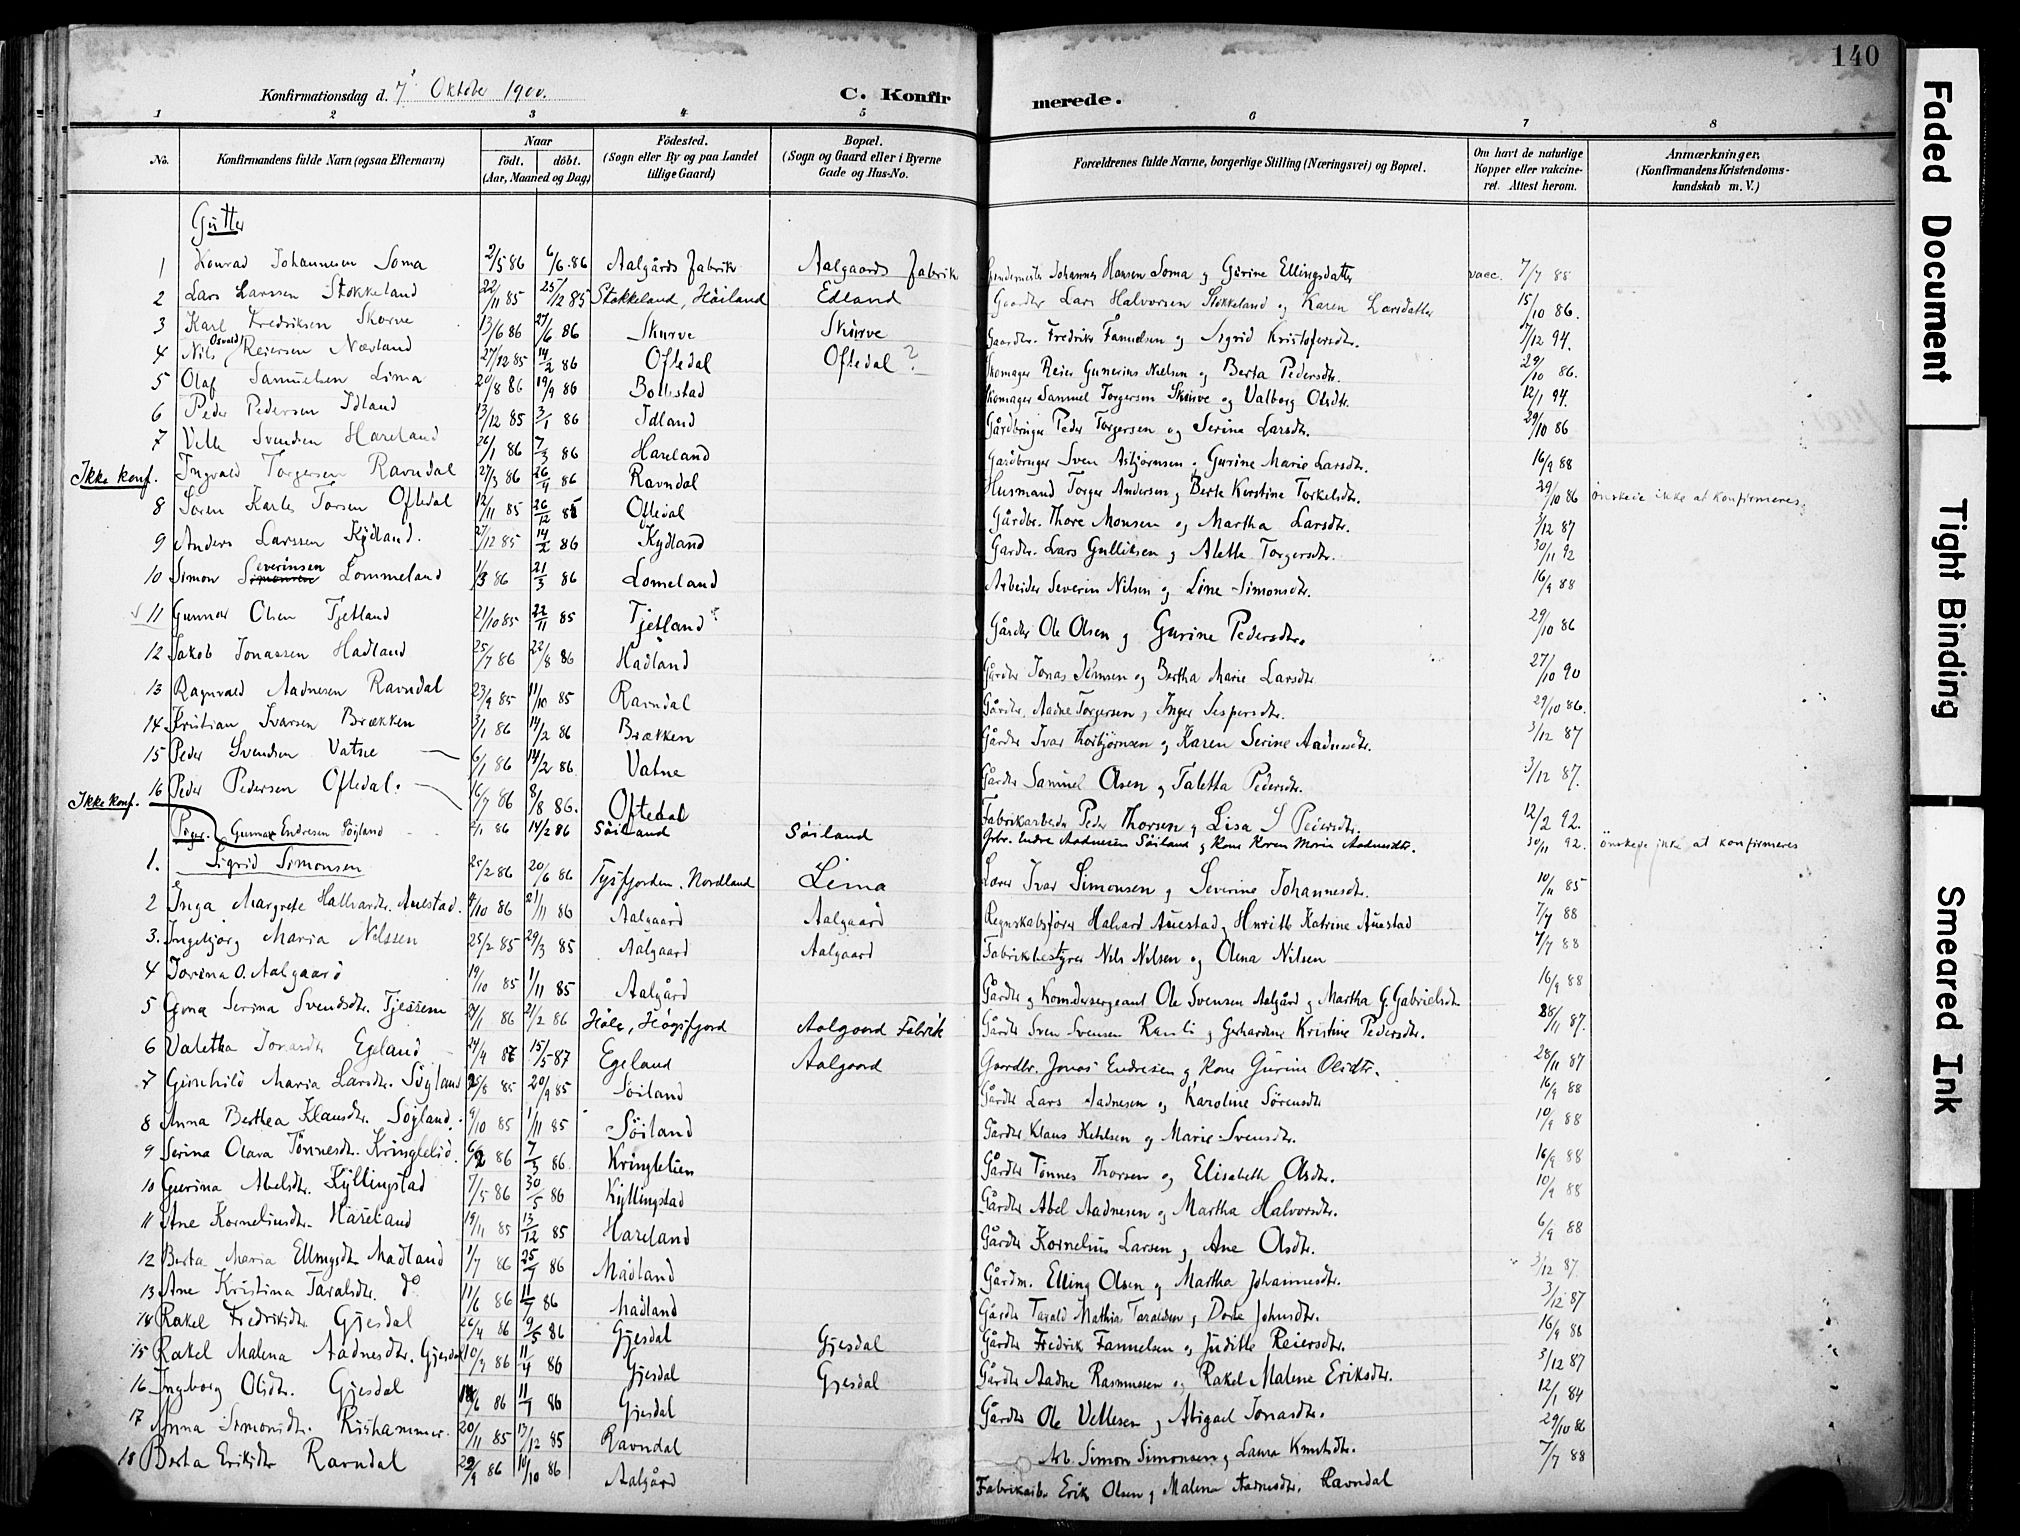 140
Konfirmationsdag d. 7' Oktober 1900.
C. Konfirmerede.
1 2 3 4 5 6 7 8
No. Konfirmandens fulde Navn (ogsaa Efternavn) Naar født. døbt. (Aar, Maaned og Dag) Fødested. (Sogn eller By og paa Landet tillige Gaard) Bopæl. (Sogn og Gaard eller i Byerne Gade og Hus-No. Forældrenes fulde Navne, borgerlige Stilling (Næringsvei) og Bopæl. Om havt de naturlige Kopper eller vakcineret. Attest herom. Anmærkninger. (Konfirmandens Kristendomskundskab m. V.)
Gutter
1 Konrad Johannesen Soma 2/5 86 6/6 86 Aalgårds fabrik Aalgaards Fabrik Johannes Hansen Soma og Gurine Ellingsdatter vacc. 7/7 88
2 Lars Larssen Stokkeland 22/11 85 25/12 85 Stokkeland, Høiland Edland Gaardbr Lars Halvorsen Stokkeland og Karen Larsdatter 15/10 86.
3 Karl Fredriksen Skurve 13/6 86 27/6 86 Skurve Skurve Gaardbr. Fredrik Fanuelsen og Sigrid Kristofersdtr. 7/12 94.
4 Nils Osvald Reiersen Næsland 27/12 85 14/2 86 Oftedal Oftedal ? Skomager Reier Gunerius Nielsen og Berta Pedersdtr. 29/10 86.
5 Olaf Samuelsen Lima 20/8 86 19/9 86 Bollestad Skomager Samuel Torgersen Skurve og Valborg Olsdtr. 12/1 94.
6 Peder Pedersen Idland 13/12 85 3/1 86 Idland Gårdbruger Peder Torgersen og Serine Larsdtr. 29/10 86
7 Velle Svendsen Hareland 26/1 86 7/3 86 Hareland Gårdbruger Sven Asbjørnsen og Gurine Marie Larsdtr. 16/9 88
Ikke konf. Ingvald Torgersen Ravndal 27/3 86 26/4 86 Ravndal Husmand Torger Andersen og Berte Kerstine Torkelsdtr. 29/10 86 ønskede ikke at konfirmeres
8 Søren Karles Torsen Oftedal 12/11 85 26/12 85 Oftedal Gårdbr. Thore Monsen og Martha Larsdtr. 3/12 87
9 Anders Larssen Kydland. 27/12 85 14/2 86 Kydland Gardbr. Lars Gulliksen og Alette Torgersdtr. 30/11 92
10 Simon Severinsen Lommeland 1/3 86 21/3 86 Lomeland Arbeider Severin Nilsen og Line Simonsdtr. 16/9 88
11 Gunnar Olsen Tjetland 21/10 85 22/11 85 Tjetland? Gårdbr Ole Olsen og Gurine Pedersdtr. 29/10 86
12 Jakob Jonassen Hadland 25/7 86 22/8 86 Hadland Gårdbr Jonas Jensen og Bertha Marie Larsdtr 27/10 90
13 Ragnvald Aadnesen Ravndal 23/9 85 11/10 85 Ravndal Gårdbr. Aadne Torgersen og Inger Jespersdtr. 29/10 86.
14 Kristian Ivarsen Brækken 3/1 86 14/2 86 Brækken Gårdbr Ivar Thorbjørnsen og Karen Serine Aadnesdtr. 3/12 87
15 Peder Svendsen Vatne 6/1 86 14/2 86 Vatne Gårdbr Samuel Olsen og Taletta Pedersdtr. 3/12 87.
16 Peder Pedersen Oftedal. 16/7 86 8/8 86. Oftedal Fabrikarbeider Peder Thorsen og Lisa S Pedersdtr. 12/2 92.
Ikke konf. Gunnar Endresen Søyland 2/1 86 14/2 86 Søiland Søiland Grbr. Endre Aadnesen Søiland og Kone Karen Maria Aadnesdtr. 30/11 92. ønskede ikke at konfirmeres
Piger.
1. Sigrid Simonsen 25/2 86 20/6 86 Tysfjorden, Nordland Lima Lærer Ivar Simonsen og Severine Johannesdtr. 10/11 85
2 Inga Margrete Hallvardtr. Auestad. 4/10 86 21/11 86 Aalgaard Aalgaard Regnskabsfører Halvard Auestad og Henritte Katrine Auestad 7/7 88
3. Ingebjørg Maria Nilssen 25/2 85 29/3 85 Aalgaard Aalgaard Fabrikbestyrer Nils Nilsen og Olena Nilsen 7/7 88
4 Torina O. Aalgaard 19/10 85 1/11 85 Aalgård Gårdbr og Komdersergeant Ole Svensen Aalgård og Martha G. Gabrielsdtr 16/9 88
5 Serina Svendsdtr. Tjessem 27/1 86 21/2 86 Høle, Høgsfjord Aalgaard Fabrik Gårdbr Sven Svensen og Gerhardine Kristine Pedersdtr. 28/11 87.
6 Valetha Jonasdtr Egeland 24/4 86 15/5 87 Egeland Aalgaard Gaardbr. Jonas Endresen og Kone Gurine Olsdtr. 28/11 87
7 Gunhild Maria Larsdtr. Søyland 25/8 85 20/9 85 Søiland Gårdbr Lars Aadnesen og Karoline Sørensdtr 16/9 88
8 Anna Berthea Klausdtr. Søyland. 9/10 85 1/11 85 Søiland Gårdbr Klaus Ketilsen og Marie Svensdtr. 10/9 88
9 Serina Olava Tønnesdtr. Kringleliø. 6/2 86 7/3 86 Kringlelien Gårdbr Tønnes Thorsen og Elisabeth Olsdtr. 16/9 88
10 Gurina Abelsdtr. Kyllingstad 7/5 86 30/5 86 Kyllingstad Gårdbr Abel Aadnesen og Martha Halvorsdtr. 10/9 88
11 Ane Korneliusdtr. Hareland 19/11 85 13/12 85 Hareland Gårdbr Kornelius Larsen og Ane Olsdtr. 6/9 88
12 Berta Maria Ellingsdtr Madland 1/7 86 25/7 86 Madland Gårdm. Elling Olsen og Martha Johannesdtr. 3/12 87
13 Ane Kristina Taraldsdtr. do 11/6 86 11/7 86 Madland Gårdbr Tarald Mathias Taraldsen og Dorte Johnsdtr. 3/12 87
14 Rakel Fredriksdtr. Gjesdal 26/4 86 9/5 86 Gjesdal Gjesdal Gårdbr Fredrik Fannelsen og Juditte Reiersdtr. 16/9 86
15 Rakel Malena Aadnesdtr. Gjesdal 10/3 86 11/4 86 Gjesdal Gjesdal Gårdbr Aadne Rasmussen og Rakel Malene Eriksdtr. 3/12 87
16 Ingeborg Olsdtr. Gjesdal 14/6 86 11/7 86 Gjesdal Gårdbr Ole Vellesen og Abigael Jonasdtr. 12/1 84
17 Anna Simonsdtr. Rishammer 20/11 85 13/12 85 Ravndal Arb. Simon Simonsen og Laura Knutsdtr. 29/10 86
18 Berta Eriksdtr Ravndal 22/9 86 10/10 86 Aalgård Fabrikarb. Erik Olsen og Malena Aadnesdtr. Ravndal 7/7 88
Faded Document
Tight Binding
Smeared Ink